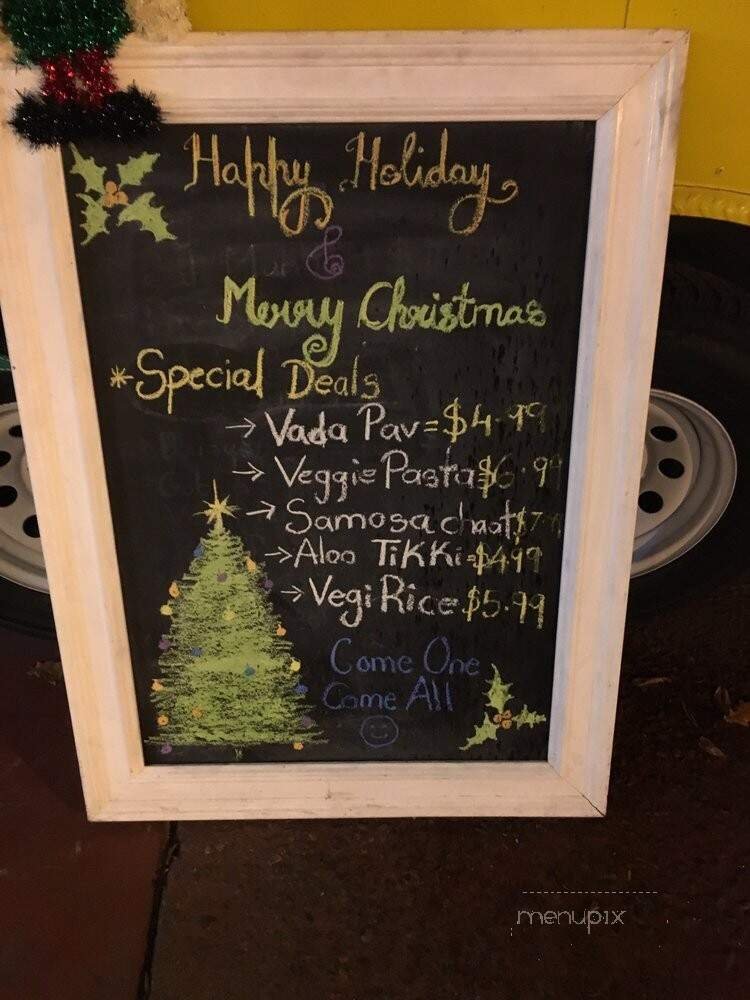 Happy Holiday
&
Merry Christmas
*Special Deals
→ Vada Pav = $4.99
→ Veggie Pasta $6.99
→ Samosa chaat $7.
→ Aloo TiKKi = $4.99
→ Vegi Rice $5.99
Come One
Come All
menupix